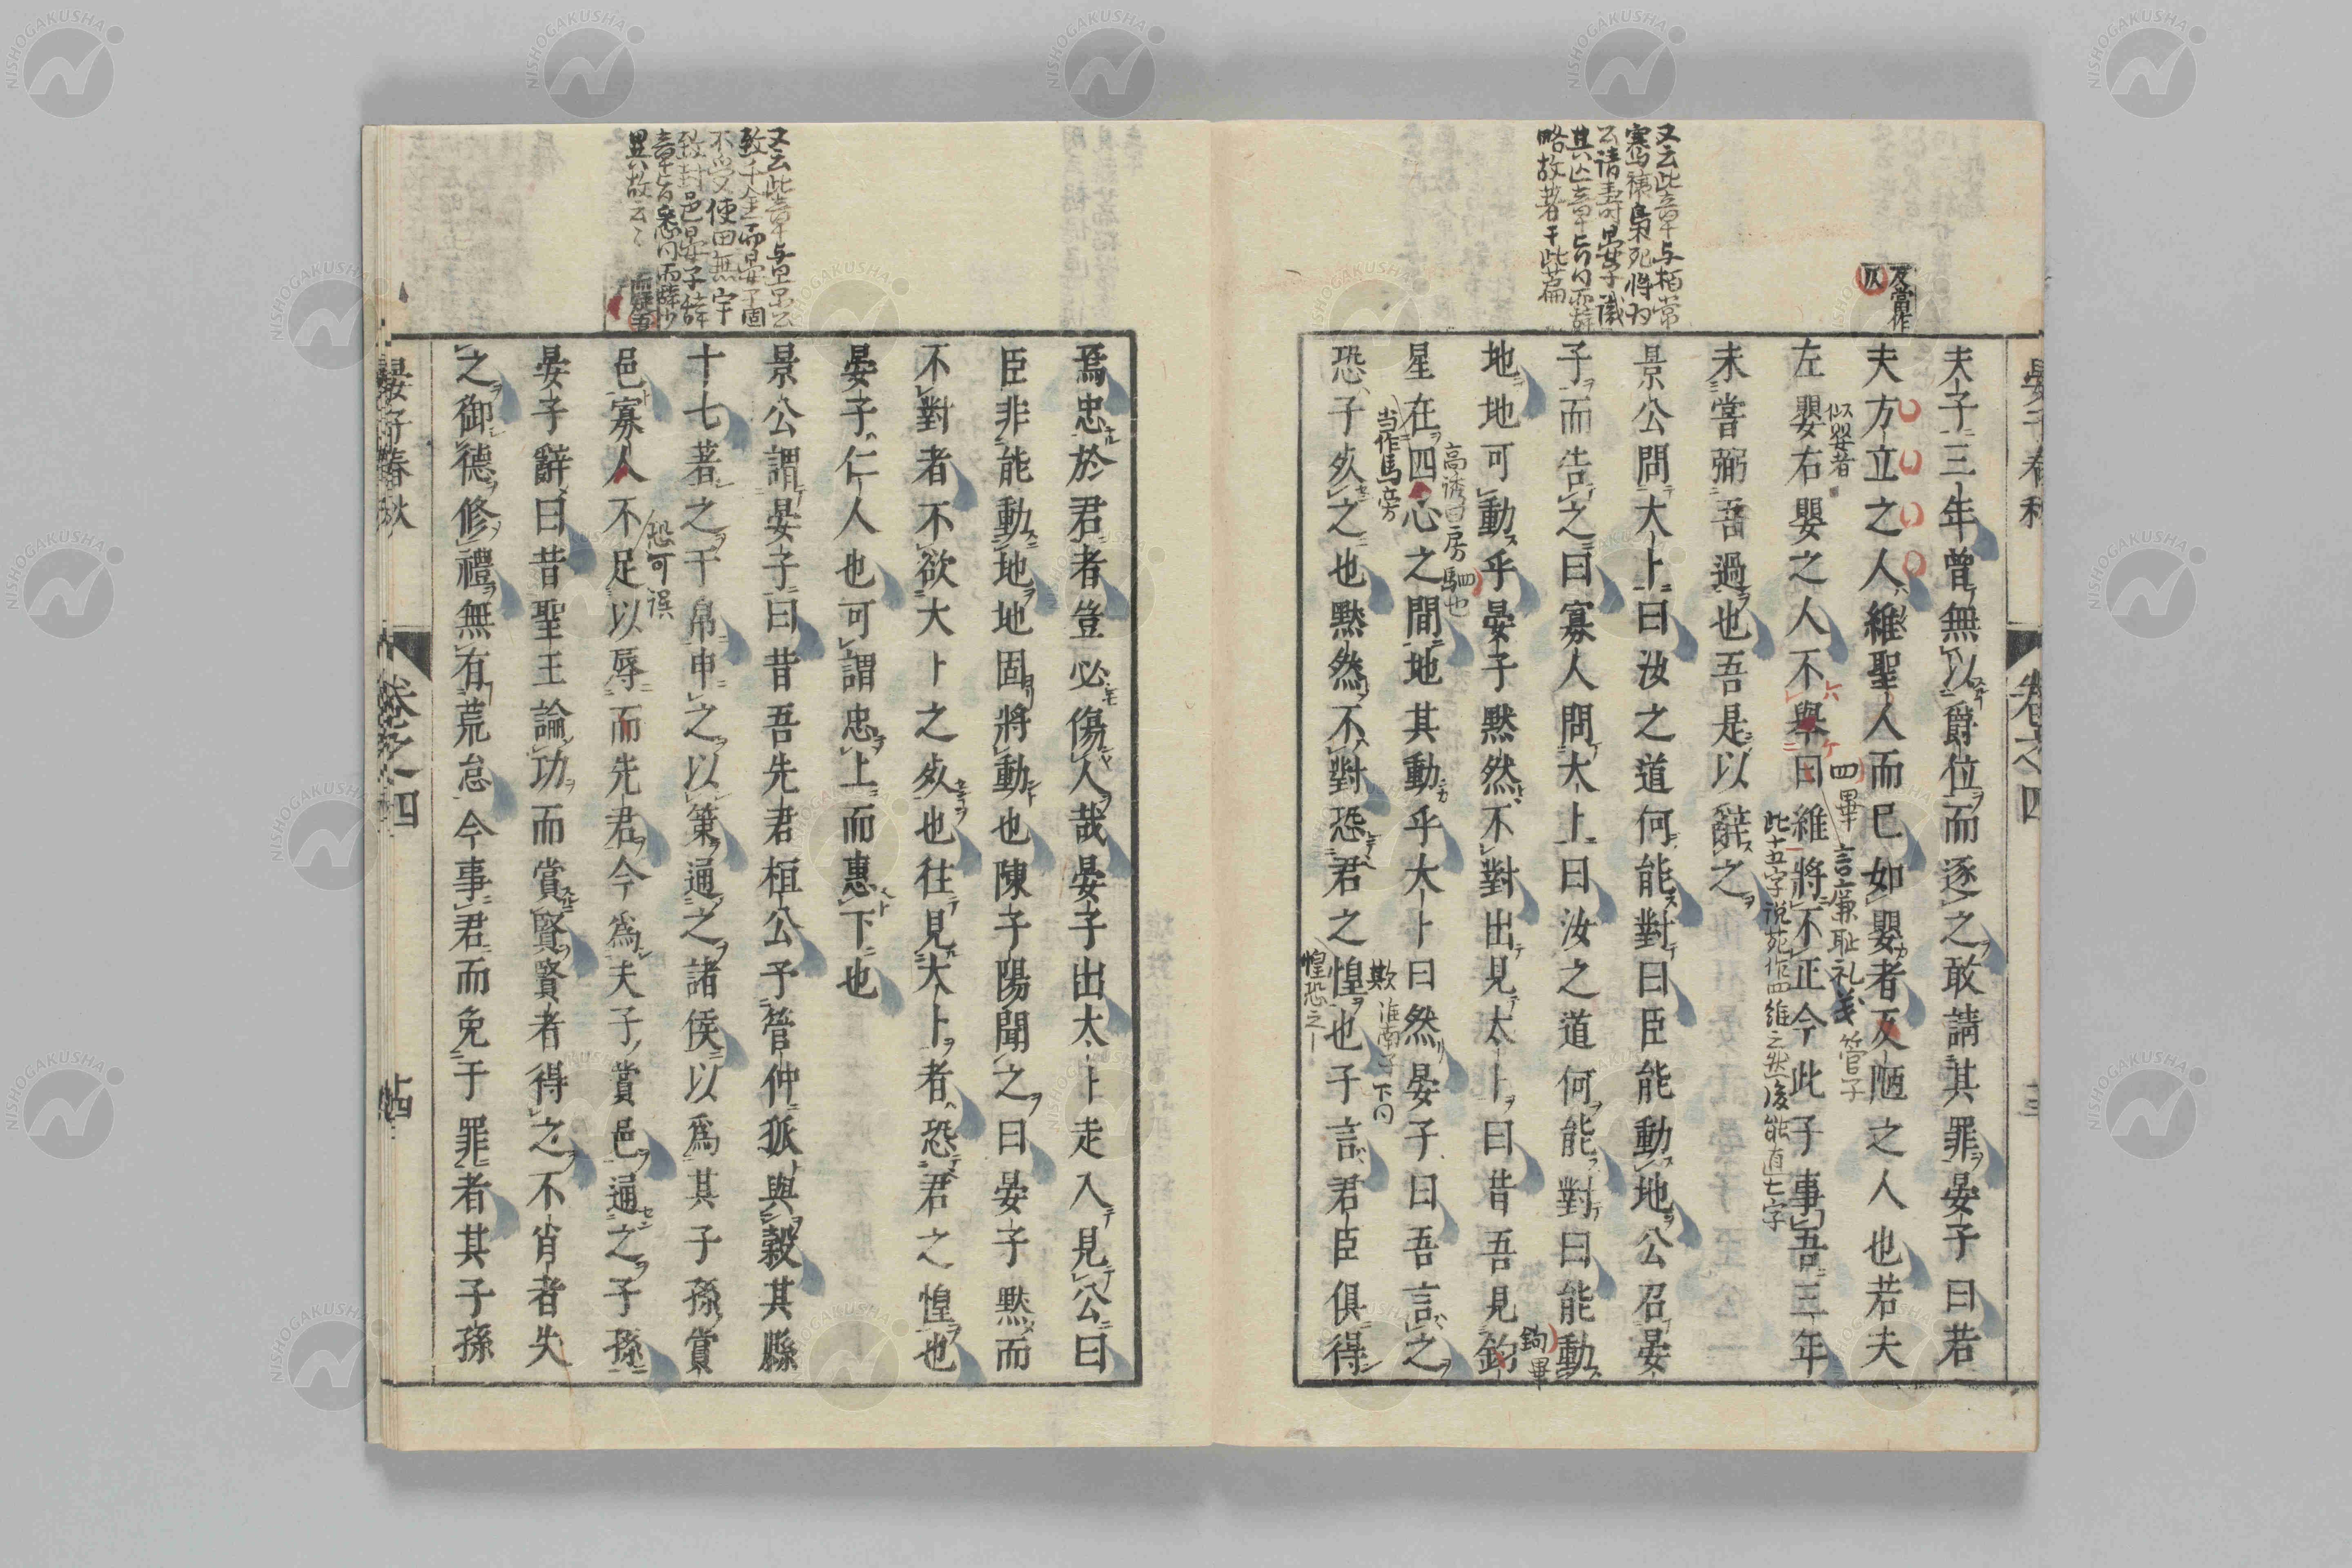 夫子三年曾無以爵位而逐之敢請其罪晏子曰若
夫方立之人維聖人而已如嬰者仄陋之人也若夫
左嬰右嬰之人不舉曰維將不正今此子事吾三年
未嘗弼吾過也吾是以辭之
景公問大卜曰汝之道何能對曰臣能動地公召晏
子而告之曰寡人問太卜曰汝之道何能對曰能動
地地可動乎晏子默然不對出見太卜曰昔吾見鉤
星在四心之間地其動乎大卜曰然晏子曰吾言之
恐子㱙之也默然不對恐君之惶也子言君臣俱得
焉忠於君者豈必傷人哉晏子出太卜走入見公曰
臣非能動地地固將動也陳子陽聞之曰晏子默而
不對者不欲大卜之㱙也往見大卜者恐君之惶也
晏子仁人也可謂忠上而惠下也
景公謂晏子曰昔吾先君桓公予管仲狐與穀其縣
十七著之于帛申之以策通之諸侯以爲其子孫賞
邑寡人不足以辱而先君今爲夫子賞邑通之子孫
晏子辭曰昔聖王論功而賞賢賢者得之不肖者失
之御德修禮無有荒怠今事君而免于罪者其子孫
晏子春秋
卷之四
十四
晏子春秋
卷之四
又云此章与柏常
騫禳梟死將为
公請壽晏子識
其妄章旨同而辞
略故著于此篇
又云此章与景公
致千金而晏子固
不受使田無宇
致封邑晏子辞
章旨悉同而辞少
異故云々
反當作
仄
似嬰者
四畢
言廉耻礼義 管子
此十五字説苑作四維之然後能直七字
鉤畢
高誘曰房駟也
当作馬旁
歟 淮南子下同
惶恐之
恐可誤
NISHOGAKUSHA